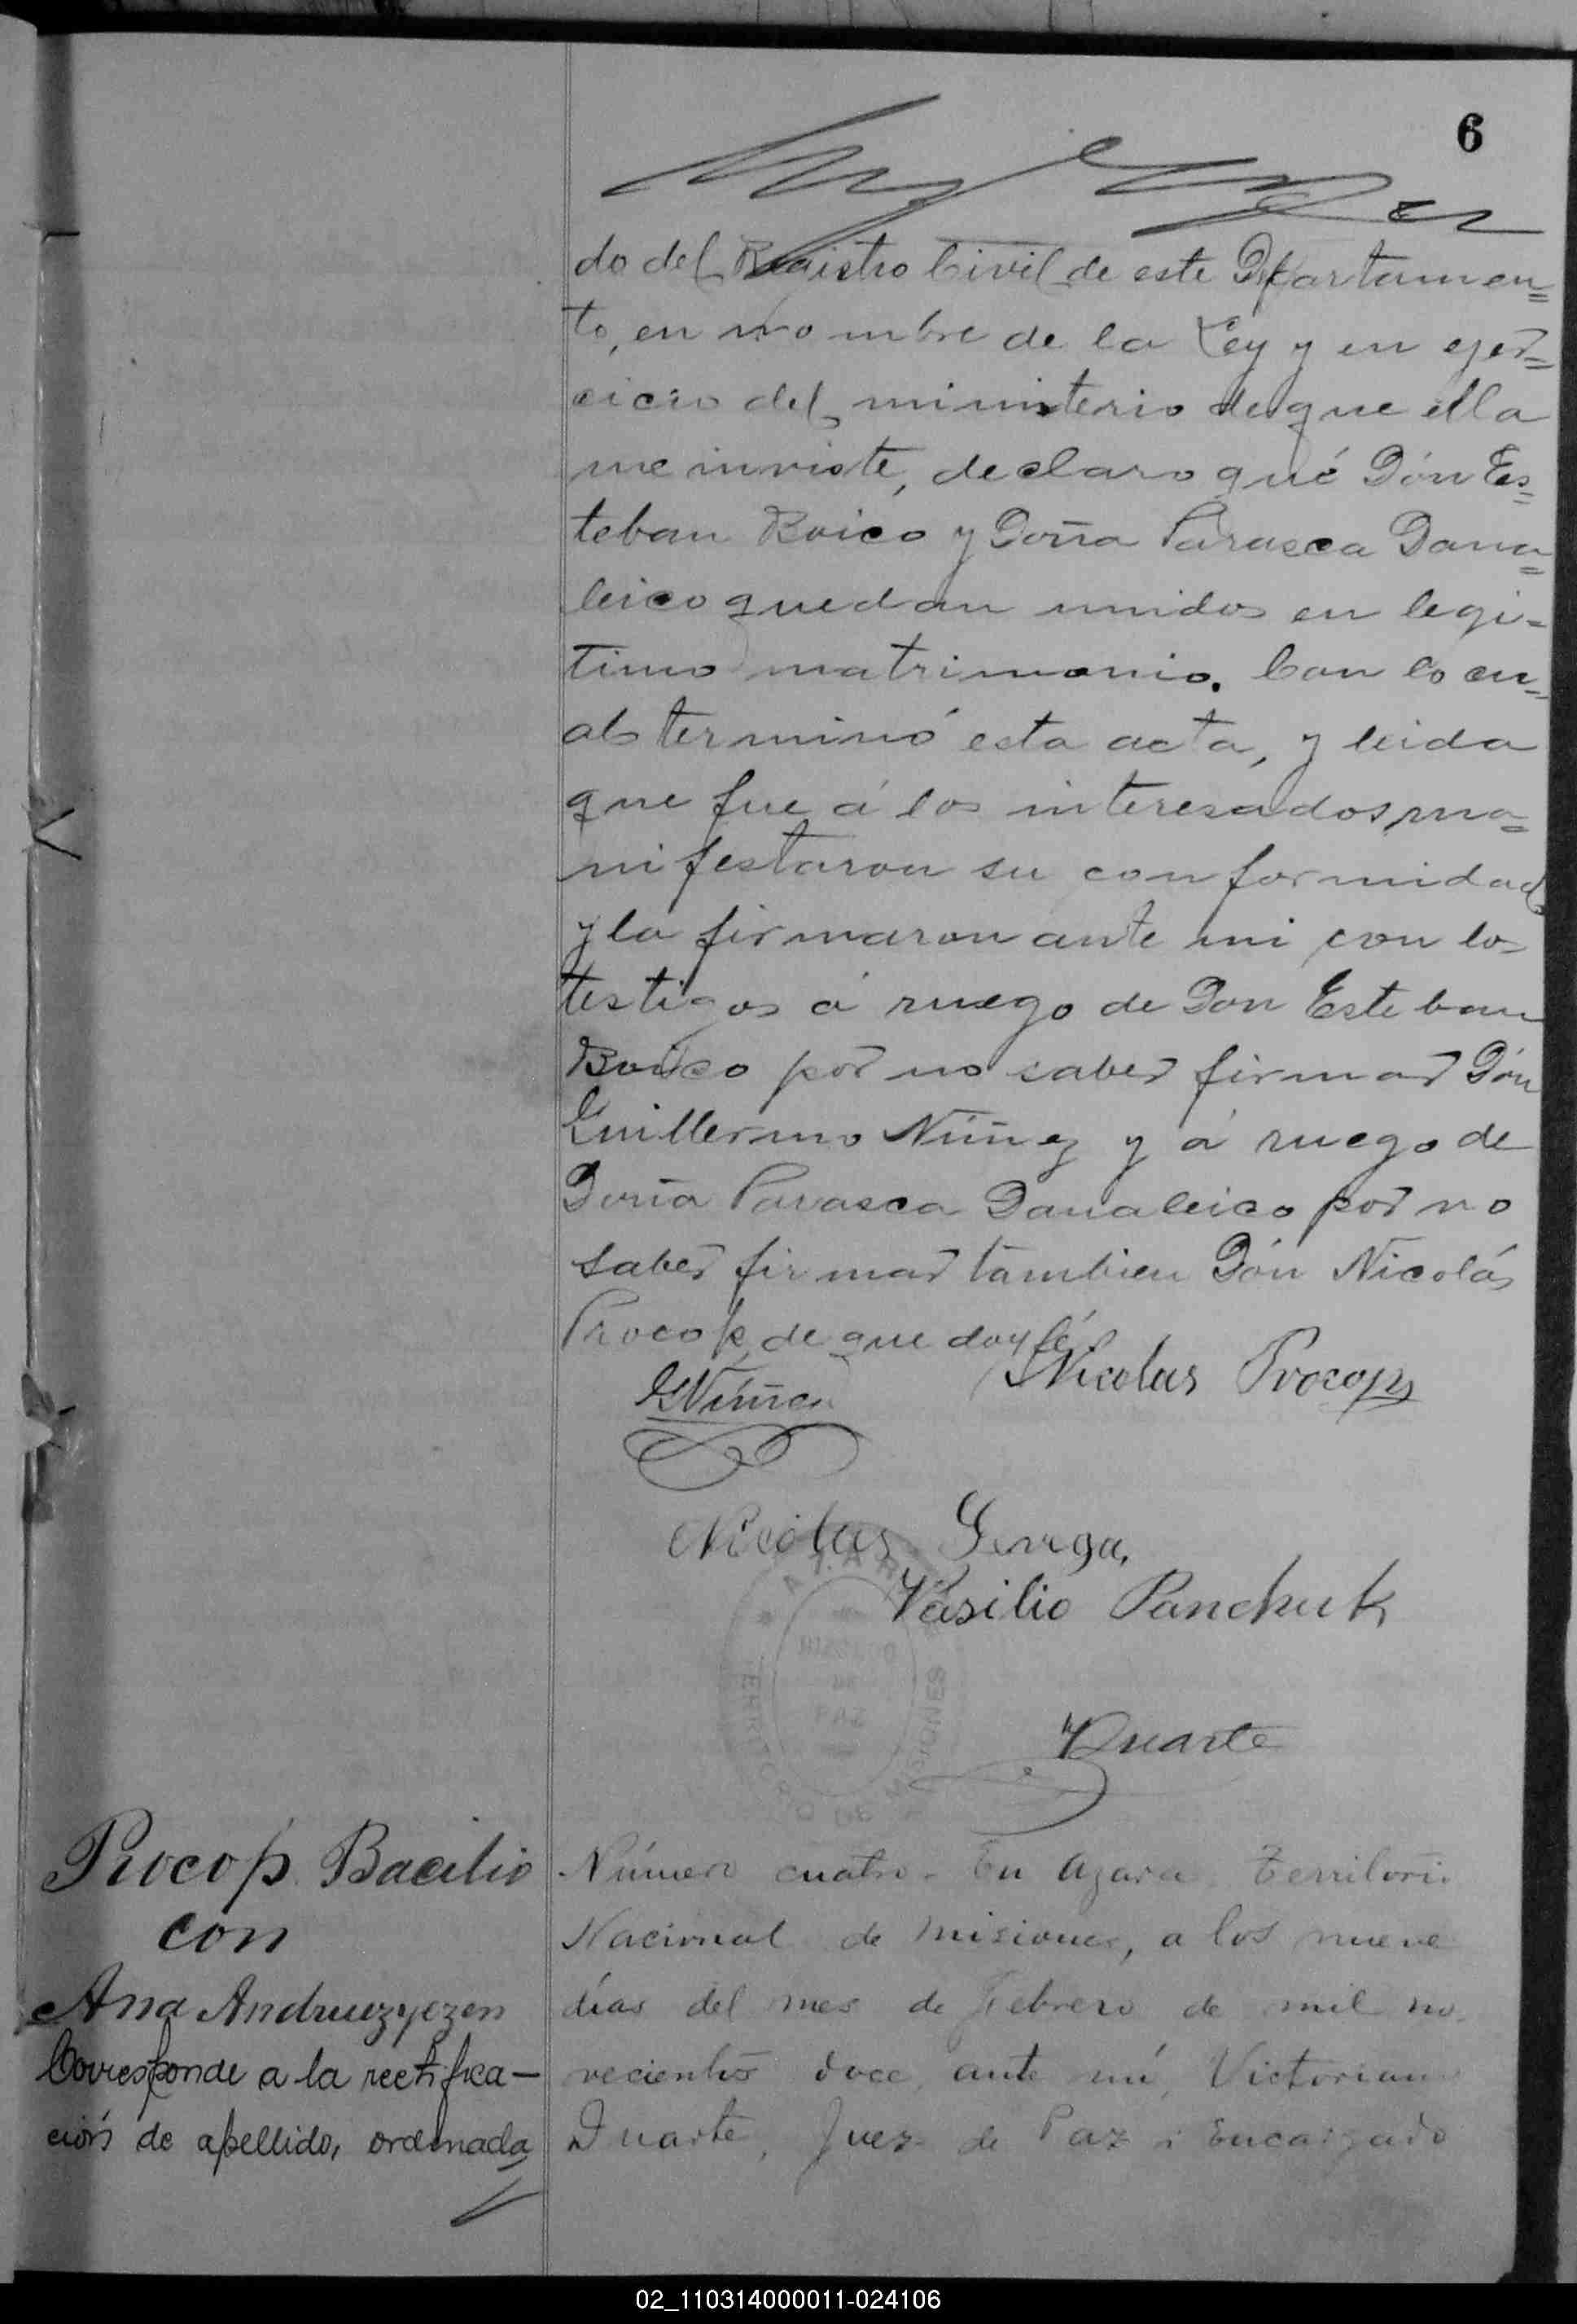 6
do del Registro Civil de este Departamen=
to, en nombre de la Ley y en ejer=
cicio del ministerio de que ella
me inviste, declaro qué Dón Es=
teban Boico y Doña Parasca Dana=
leico quedan unidos en legi=
timo matrimonio. Con lo cu=
al terminó esta acta, y leida
que fue á los interesados, ma=
nifestaron su conformidad
y la firmaron ante mi con los
testigos á ruego de Don Esteban
Boico por no saber firmar Dón
Guillermo Núñez y á ruego de
Doña Parasca Danaleico por no
saber firmar tambien Dón Nicolás
Procop, de que doy fé.
GNúñez
Nicolas Procop
Nicolas
Vasilio Panchuk
AZARA
JUZGADO
DE
PAZ
TERRITORIO DE MISIONES
Duarte
Procop Bacilio
con
Ana Andruezyezen
Corresponde a la rectifica—
ción de apellido, ordenada
Número cuatro. En Azara, Territorio
Nacional de Misiones, a los nueve
días del mes de Febrero de mil no-
vecientos doce, ante mí, Victoriano
Duarte, Juez de Paz i Encargado
02_110314000011-024106